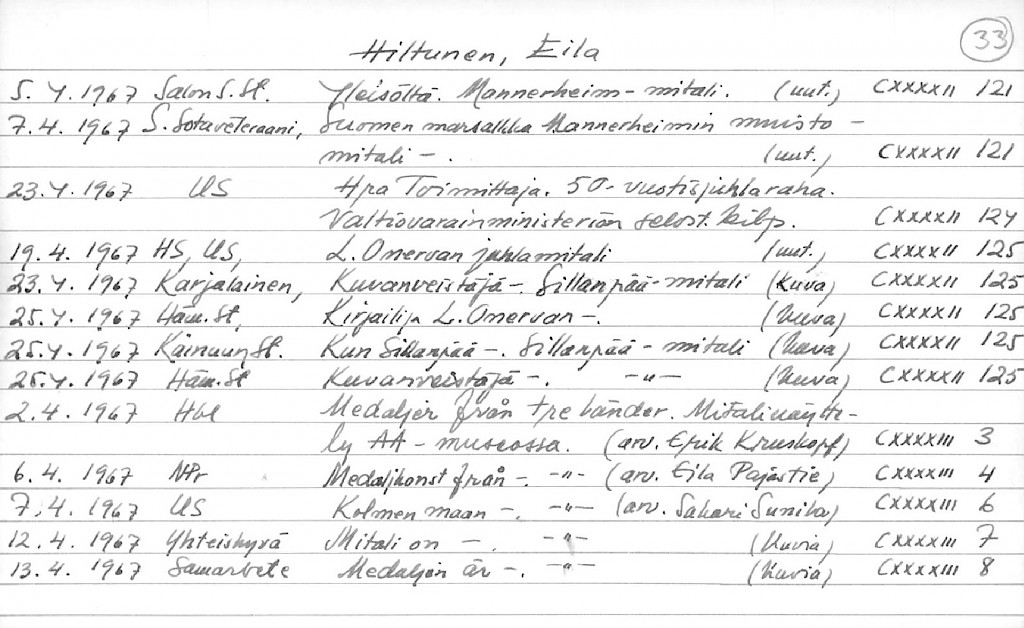 33
Hiltunen, Eila
5.4.1967 Salon S.St. Yleisöltä. Mannerheim-mitali. (uut.) CXXXXII 121
7.4.1967 S. Sotaveteraani, Suomen marsalkka Mannerheimin muisto-
mitali -. (uut.) CXXXXII 121
23.4.1967 US Hra Toimittaja. 50-vuotisjuhlaraha.
Valtiovarainministeriön selost. kilp. CXXXXII 124
19.4.1967 HS, US, L. Onervan juhlamitali (uut.) CXXXXII 125
23.4.1967 Karjalainen, Kuvanveistäjä -. Sillanpää-mitali (kuva) CXXXXII 125
25.4.1967 Häm.St, Kirjailija L. Onervan -. (kuva) CXXXXII 125
25.4.1967 Kainuun St. Kun Sillanpää -. Sillanpää-mitali (kuva) CXXXXII 125
25.4.1967 Häm.St Kuvanveistäjä -. -"- (kuva) CXXXXII 125
2.4.1967 Hbl Medaljer från tre länder. Mitalinäytte-
ly AA-museossa. (arv. Erik Kruskopf) CXXXXIII 3
6.4.1967 NPr Medaljkonst från -. -"- (arv. Eila Pajastie) CXXXXIII 4
7.4.1967 US Kolmen maan -. -"- (arv. Sakari Saarikivi) CXXXXIII 6
12.4.1967 Yhteishyvä Mitali on -. -"- (kuvia) CXXXXIII 7
13.4.1967 Samarbete Medaljen är -. -"- (kuvia) CXXXXIII 8